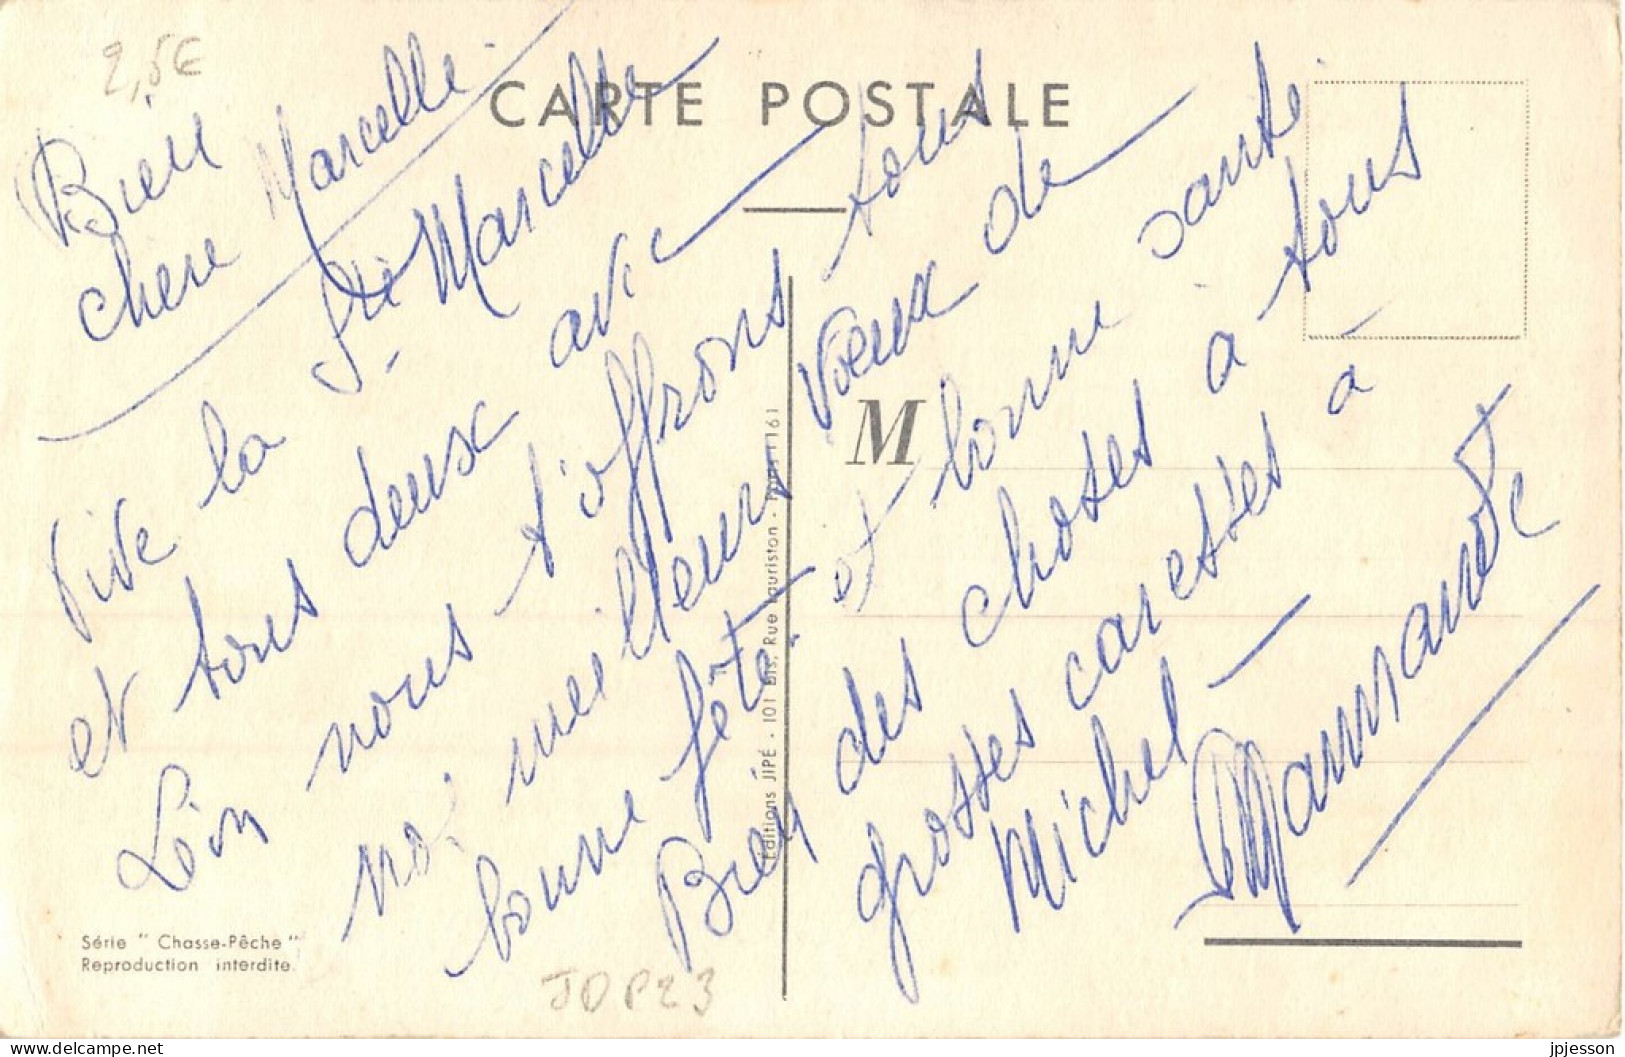 2,5€
CARTE POSTALE
Bien
chere Marcelle
Vive la Ste Marcelle
et tous deux avec
Léon nous t'offrons tous
nos meilleurs vœux de
bonne fête et bonne santé.
Bien des choses à tous
grosses caresses à
Michel
M
Editions JIPÉ - 101 bis, Rue Lauriston - Paris 1161
Série " Chasse-Pêche "
Reproduction interdite.
JDP23
jpjesson